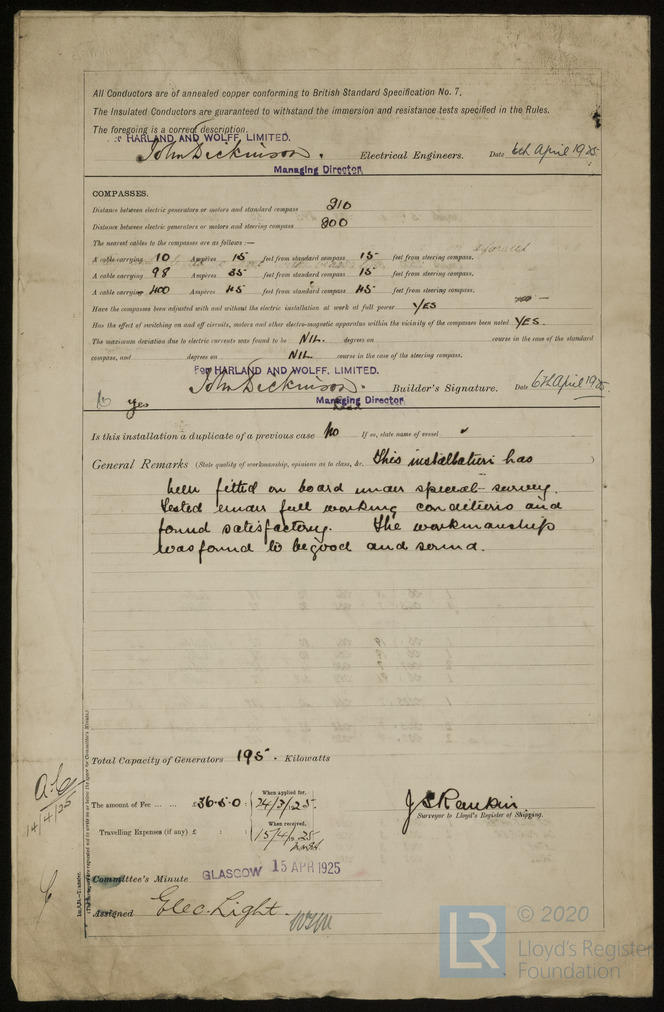 All Conductors are of annealed copper conforming to British Standard Specification No. 7.
The Insulated Conductors are guaranteed to withstand the immersion and resistance tests specified in the Rules.
The foregoing is a correct description.
For HARLAND AND WOLFF, LIMITED.
John Dickinson. Electrical Engineers. Date 6th April 1925
Managing Director.
COMPASSES.
Distance between electric generators or motors and standard compass 210
Distance between electric generators or motors and steering compass 200
The nearest cables to the compasses are as follows :—
A cable carrying 10 Ampères 15 feet from standard compass 15 feet from steering compass.
A cable carrying 98 Ampères 35 feet from standard compass 15 feet from steering compass.
A cable carrying 400 Ampères 45 feet from standard compass 45 feet from steering compass.
Have the compasses been adjusted with and without the electric installation at work at full power YES
Has the effect of switching on and off circuits, motors and other electro-magnetic apparatus within the vicinity of the compasses been noted YES.
The maximum deviation due to electric currents was found to be NIL. degrees on course in the case of the standard
compass, and degrees on NIL. course in the case of the steering compass.
For HARLAND AND WOLFF, LIMITED.
John Dickinson. Builder's Signature. Date 6th April 1925.
Managing Director
yes
Is this installation a duplicate of a previous case No If so, state name of vessel
General Remarks (State quality of workmanship, opinions as to class, &c. This installation has
been fitted on board under special survey.
Tested under full working conditions and
found satisfactory. The workmanship
was found to be good and sound.
Total Capacity of Generators 195. Kilowatts
The amount of Fee ... ... £36.5.0 When applied for, 24/3/25.
Travelling Expenses (if any) £ : : When received, 15/4/25
J S Rankin
Surveyor to Lloyd's Register of Shipping.
14/4/25
Committee's Minute GLASGOW 15 APR 1925
Assigned Elec. Light.
Im.5,21.—Transfer.
LR © 2020
Lloyd's Register
Foundation